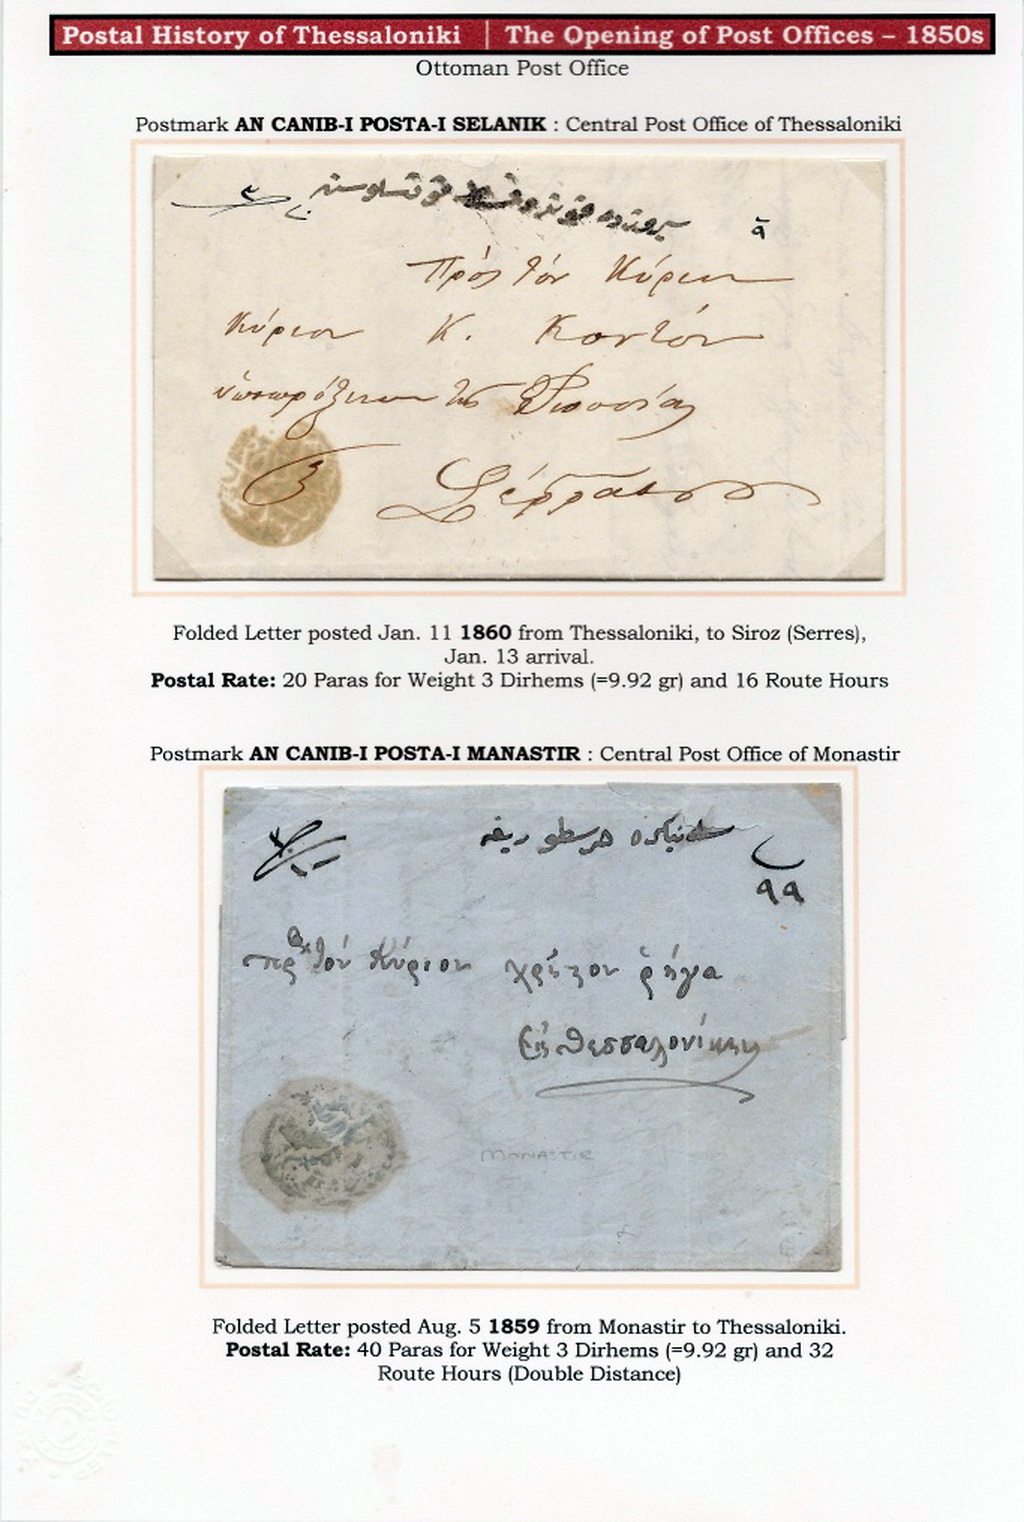 Postal History of Thessaloniki | The Opening of Post Offices – 1850s
Ottoman Post Office
Postmark AN CANIB-I POSTA-I SELANIK : Central Post Office of Thessaloniki
Πρὸς τὸν Κύριον
Κύριον Κ. Κοντόν
ὑποπρόξενον τῆς Ῥωσσίας
Σέρρας
Folded Letter posted Jan. 11 1860 from Thessaloniki, to Siroz (Serres),
Jan. 13 arrival.
Postal Rate: 20 Paras for Weight 3 Dirhems (=9.92 gr) and 16 Route Hours
Postmark AN CANIB-I POSTA-I MANASTIR : Central Post Office of Monastir
٩٩
τὸν Κύριον ῥήγα
Εἰς Θεσσαλονίκην
MONASTIR
Folded Letter posted Aug. 5 1859 from Monastir to Thessaloniki.
Postal Rate: 40 Paras for Weight 3 Dirhems (=9.92 gr) and 32
Route Hours (Double Distance)